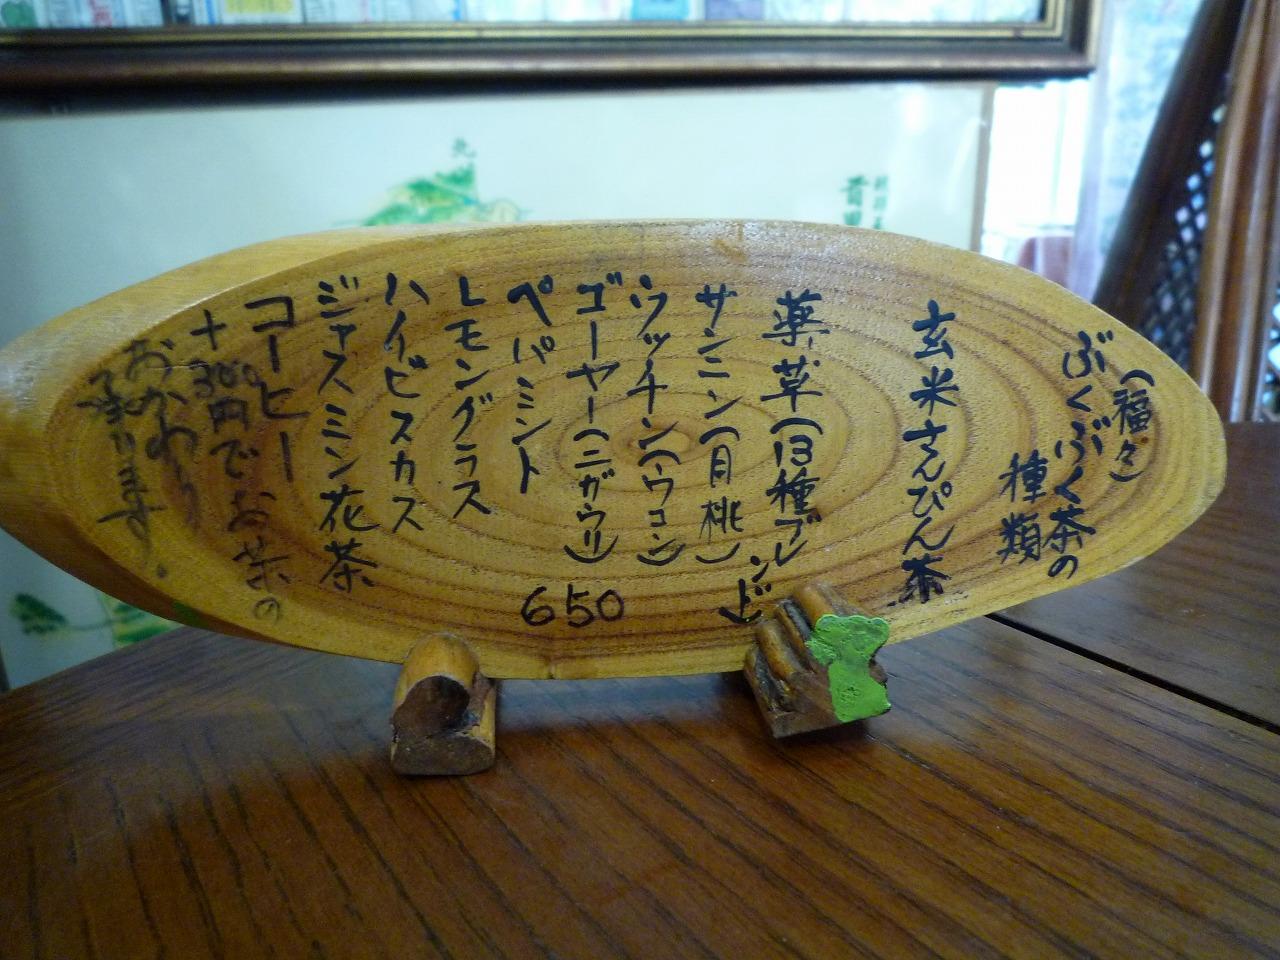 (福々)
ぶくぶく茶の
種類
玄米さんぴん茶
薬草(13種ブレンド)
サンニン(月桃)
ウッチン(ウコン)
ゴーヤー(ニガウリ)
ペパミント
レモングラス
ハイビスカス
ジャスミン花茶
コーヒー
650
+300円でお茶の
おかわり
承ります。